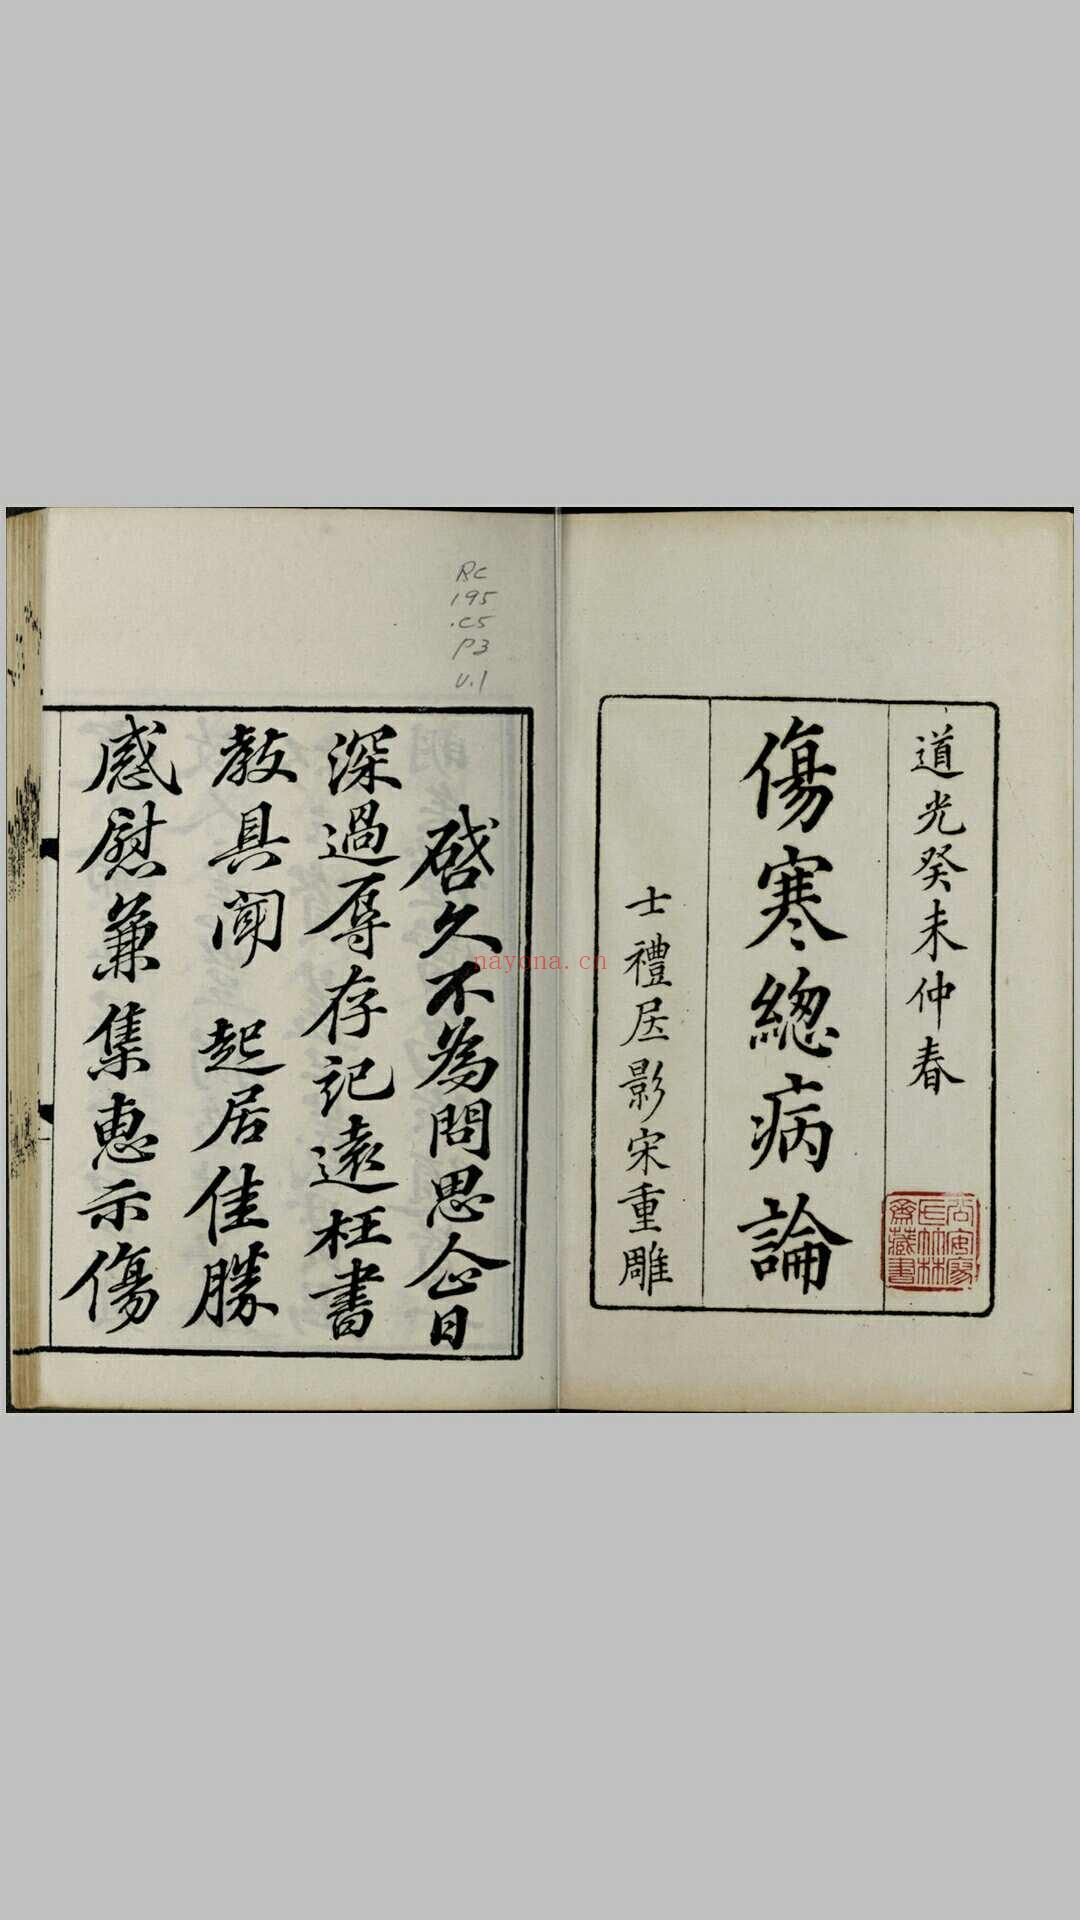 道光癸未仲春
傷寒總病論
士禮居影宋重雕
啓久不為問思企日
深過辱存記遠枉書
教具聞　起居佳勝
感慰兼集惠示傷
RC
195
.C5
P3
v.1
nayona.cn